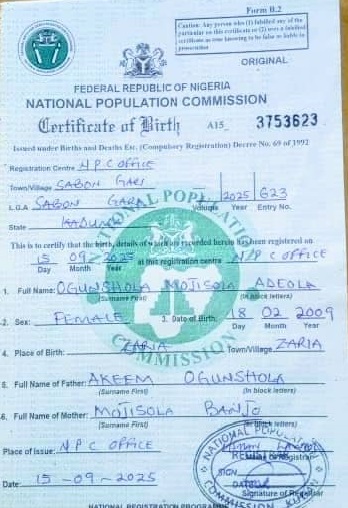 Form B.2
Caution: Any person who (1) falsified any of the
particular on this certificate or (2) uses a falsified
certificate as true knowing to be false is liable to
prosecution
ORIGINAL
FEDERAL REPUBLIC OF NIGERIA
NATIONAL POPULATION COMMISSION
Certificate of Birth A15_ 3753623
Issued under Births and Deaths Etc. (Compulsory Registration) Decree No. 69 of 1992
Registration Centre NPC OFFICE
Town/Village SABON GARI
L.G.A SABON GARI Volume 2025 Year 623 Entry No.
State KADUNA
This is to certify that the birth, details of which are recorded herein has been registered on
15 09 2025 at this registration centre NPC OFFICE
Day Month Year
1. Full Name: OGUNSHOLA MOJISOLA ADEOLA
(Surname First) (In block letters)
2. Sex: FEMALE 3. Date of Birth: 18 02 2009
Day Month Year
4. Place of Birth: ZARIA Town/Village ZARIA
5. Full Name of Father: AKEEM OGUNSHOLA
(Surname First) (In block letters)
6. Full Name of Mother: MOJISOLA BANJO
(Surname First) (In block letters)
Place of Issue: NPC OFFICE
Date: 15-09-2025
Signature of Registrar
NATIONAL POPULATION COMMISSION
SIGN